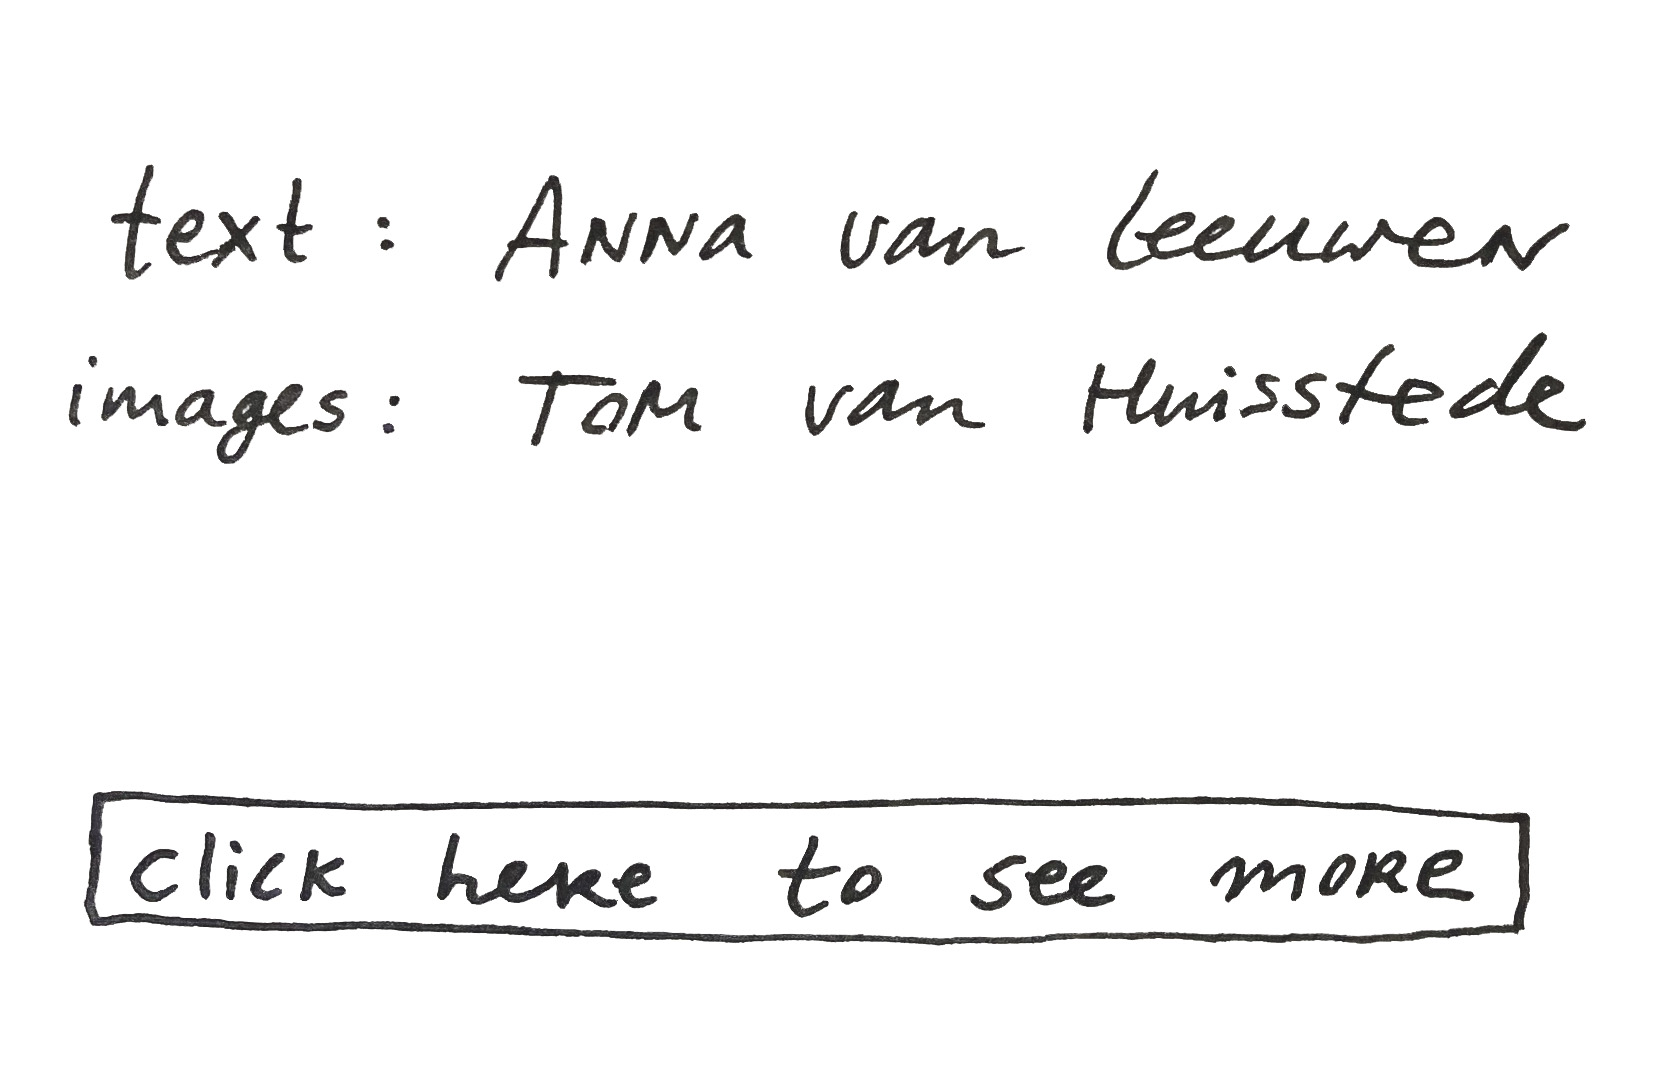 text: Anna van Leeuwen
images: Tom van Huisstede
click here to see more